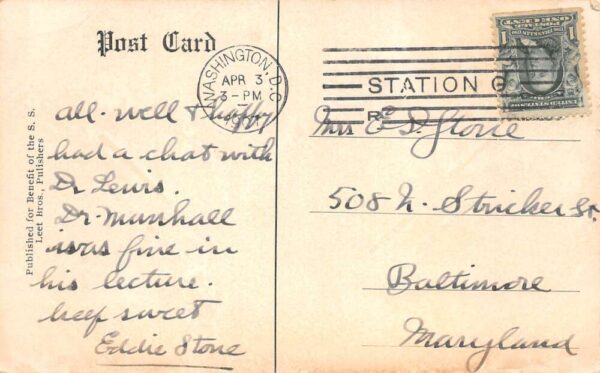 Post Card
WASHINGTON, D.C.
APR 3
3-PM
STATION G
all well & happy
had a chat with
Dr Lewis.
Dr Munhall
was fine in
his lecture.
keep sweet
Eddie Stone
Mrs E D. Stone
508 N. Stricker St.
Baltimore
Maryland
Published for Benefit of the S. S.
Leet Bros., Pulishers